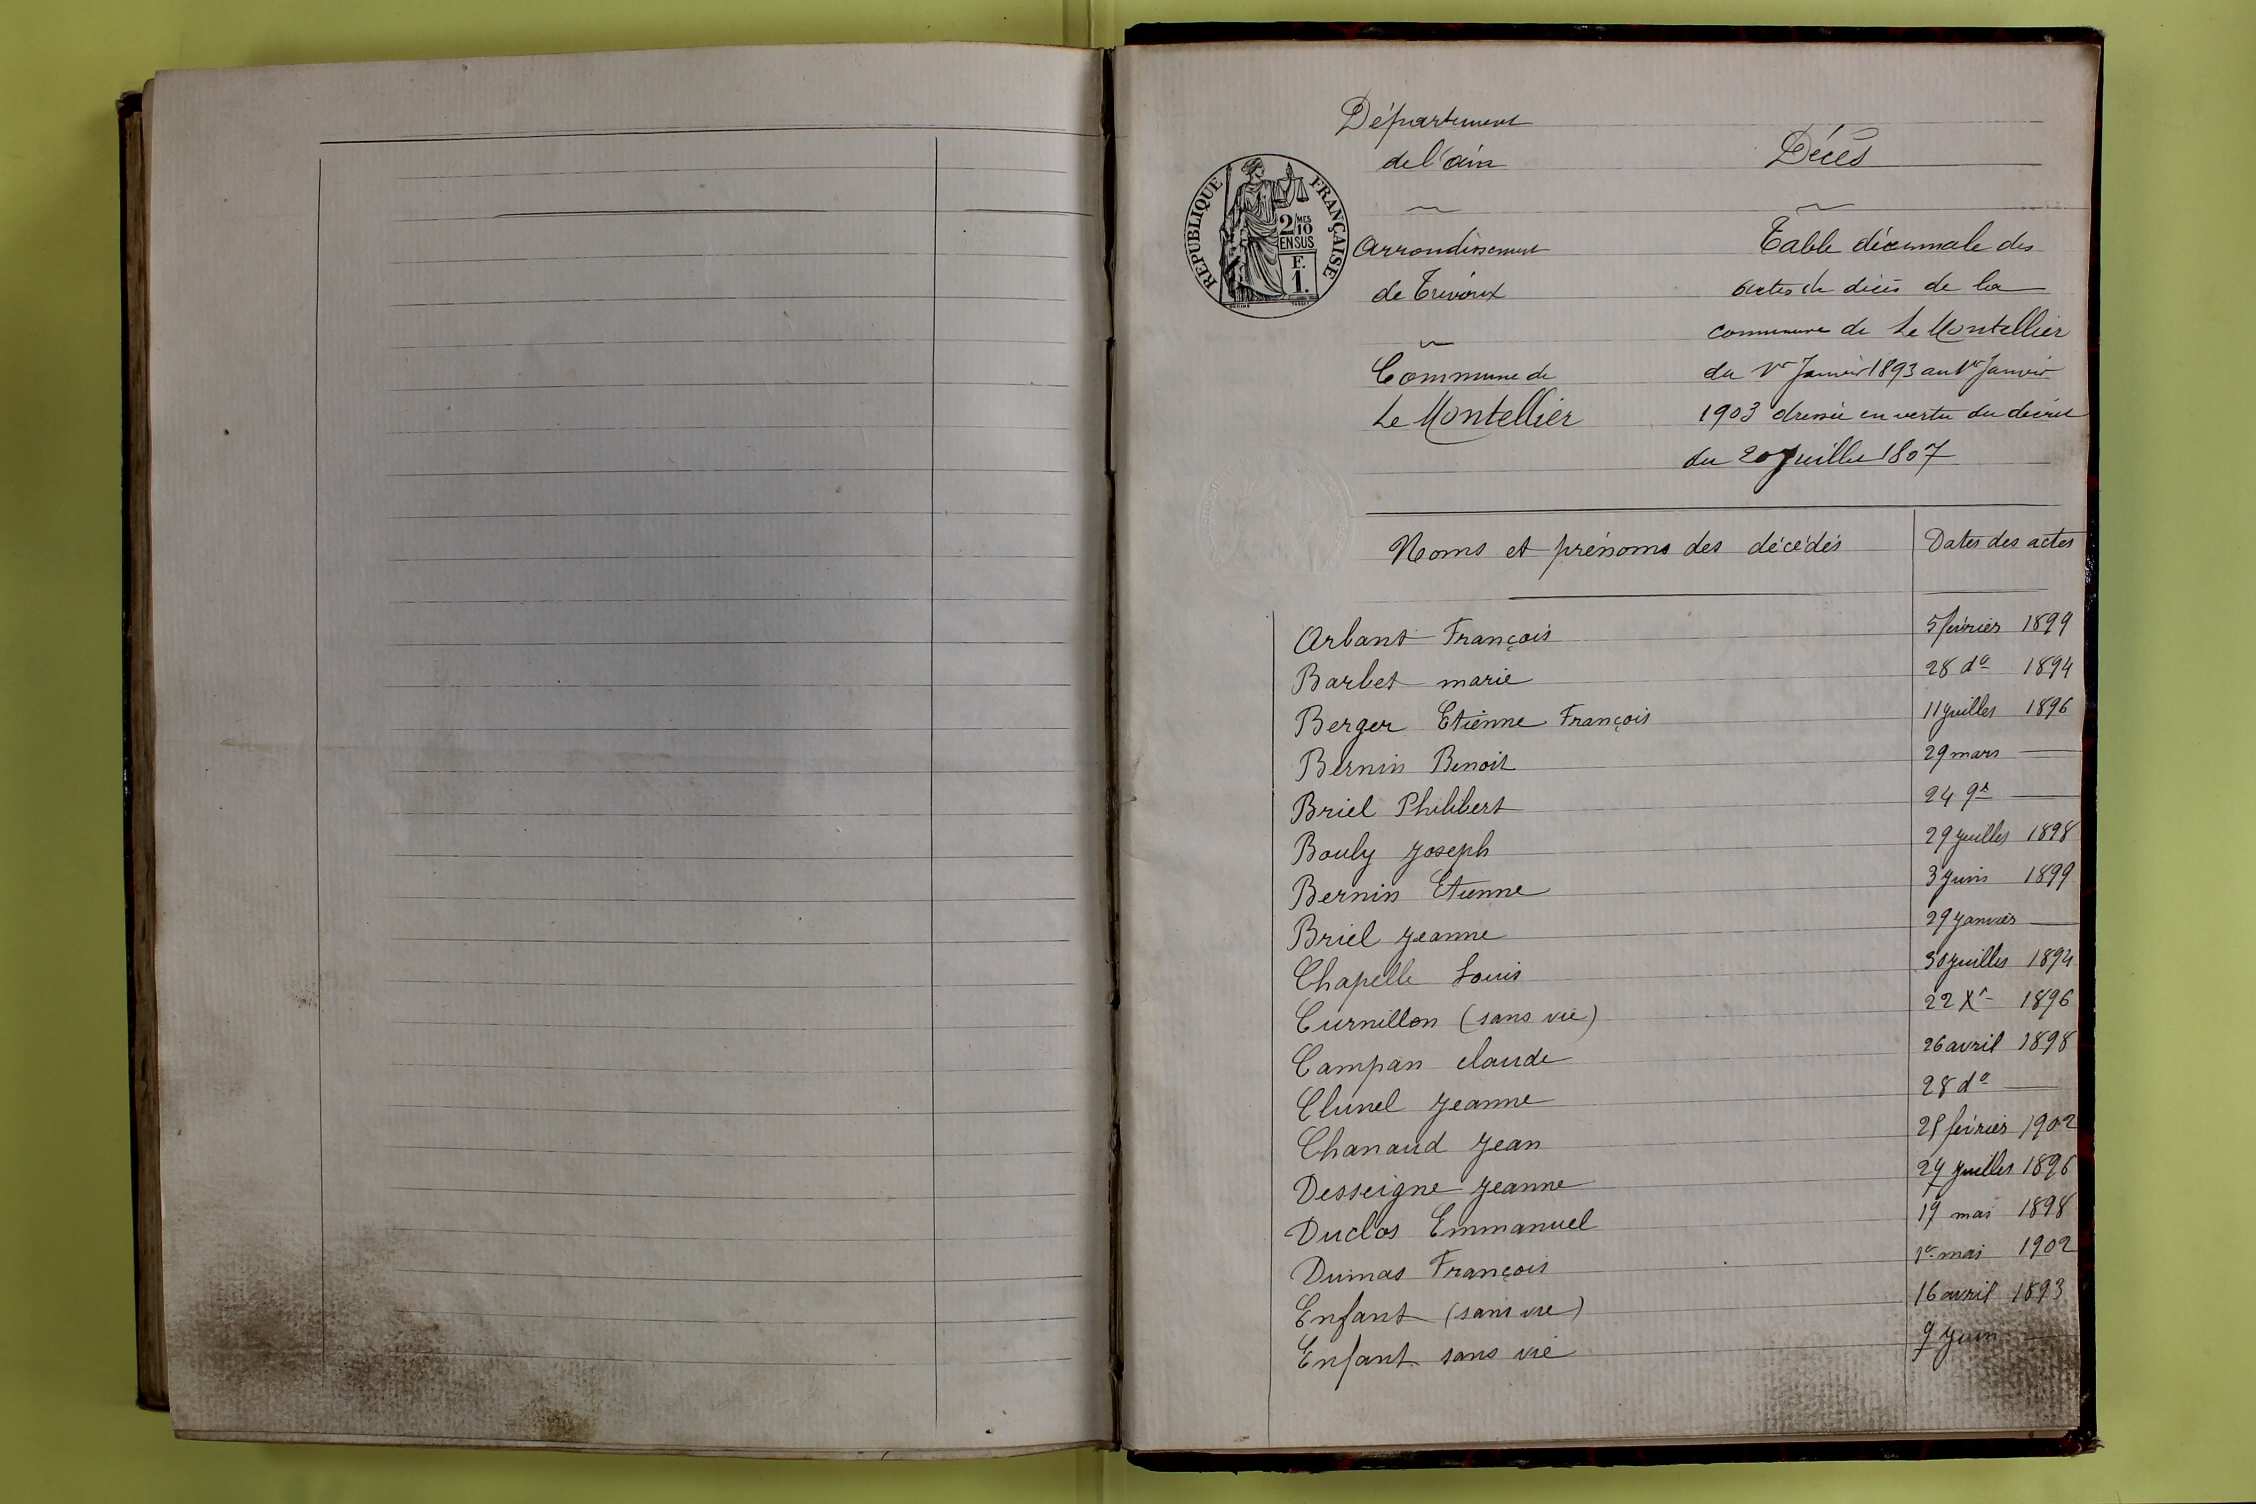 Département
de l'ain
Arrondissement
de Trévoux
Commune de
Le Montellier
RÉPUBLIQUE FRANÇAISE
2/10 MES
EN SUS
F.
1.
Décès
Table décennale des
actes de décès de la
commune de Le Montellier
du 1er Janvier 1893 au 1er Janvier
1903 dressée en vertu du décret
du 20 Juillet 1807
Noms et prénoms des décédés Dates des actes
Arbant François 5 février 1899
Barbet marie 28 do 1894
Berger Etienne François 11 Juillet 1896
Bernin Benoit 29 mars —
Briel Philibert 24 9re —
Bouly Joseph 29 Juillet 1898
Bernin Etienne 3 Juin 1899
Briel Jeanne 29 Janvier —
Chapelle Louis 30 Juillet 1894
Curnillon (sans vie) 22 Xre 1896
Campan claude 26 avril 1898
Clunel Jeanne 28 do —
Chanaud Jean 28 février 1902
Desseigne Jeanne 27 Juillet 1896
Duclos Emmanuel 17 mai 1898
Dumas François 1er mai 1902
Enfant (sans vie) 16 avril 1893
Enfant sans vie 9 Juin —